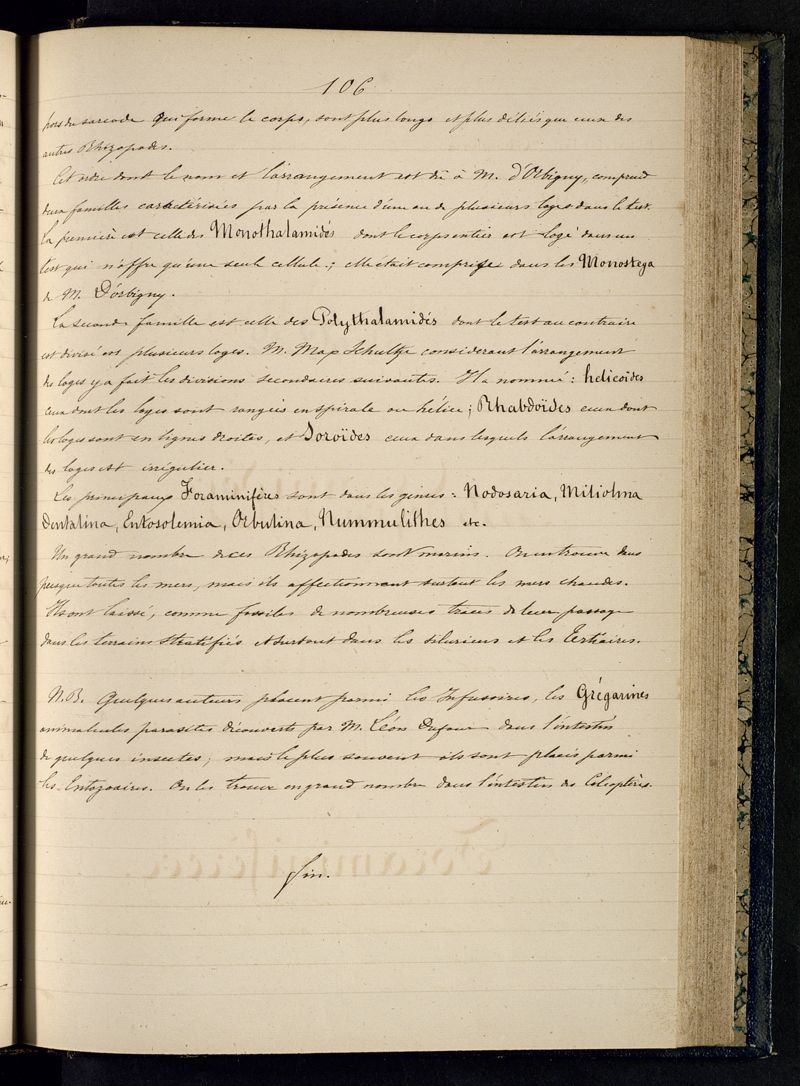 106
hors du sarcode qui forme le corps, sont plus longs et plus déliés que ceux des
autres Rhizopodes.
Cet ordre dont le nom et l'arrangement est dû à M. d'Orbigny, comprend
deux familles caractérisées par la présence d'une ou de plusieurs loges dans le test.
La première est celle des Monothalamidés dont le corps entier est logé dans un
test qui n'offre qu'une seule cellule ; elle était comprise dans les Monostega
de M. D'orbigny.
La seconde famille est celle des Polythalamidés dont le test au contraire
est divisé en plusieurs loges. M. Max Schultze considerant l'arrangement
des loges y a fait les divisions secondaires suivantes. Il a nommé : helicoïdes
ceux dont les loges sont rangées en spirale ou hélice ; Rhabdoïdes ceux dont
les loges sont en lignes droites, et Soroïdes ceux dans lesquels l'arrangement
des loges est irrégulier.
Les principaux Foraminifères sont dans les genres : Nodosaria, Miliolina
Dentalina, Entosolemia, Orbulina, Nummulithes etc.
Un grand nombre de ces Rhizopodes sont marins. On en trouve dans
presque toutes les mers, mais ils affectionnent surtout les mers chaudes.
Ils ont laissé, comme fossiles de nombreuses traces de leur passage
dans les terrains stratifiés et surtout dans les siluriens et les Tertiaires.
N.B. Quelques auteurs placent parmi les Infusoires, les Grégarines
animalcules parasites découverts par M. Léon Dufour dans l'intestin
de quelques insectes ; mais le plus souvent ils sont placés parmi
les Entozoaires. On les trouve en grand nombre dans l'intestin des Coléoptères.
Fin.